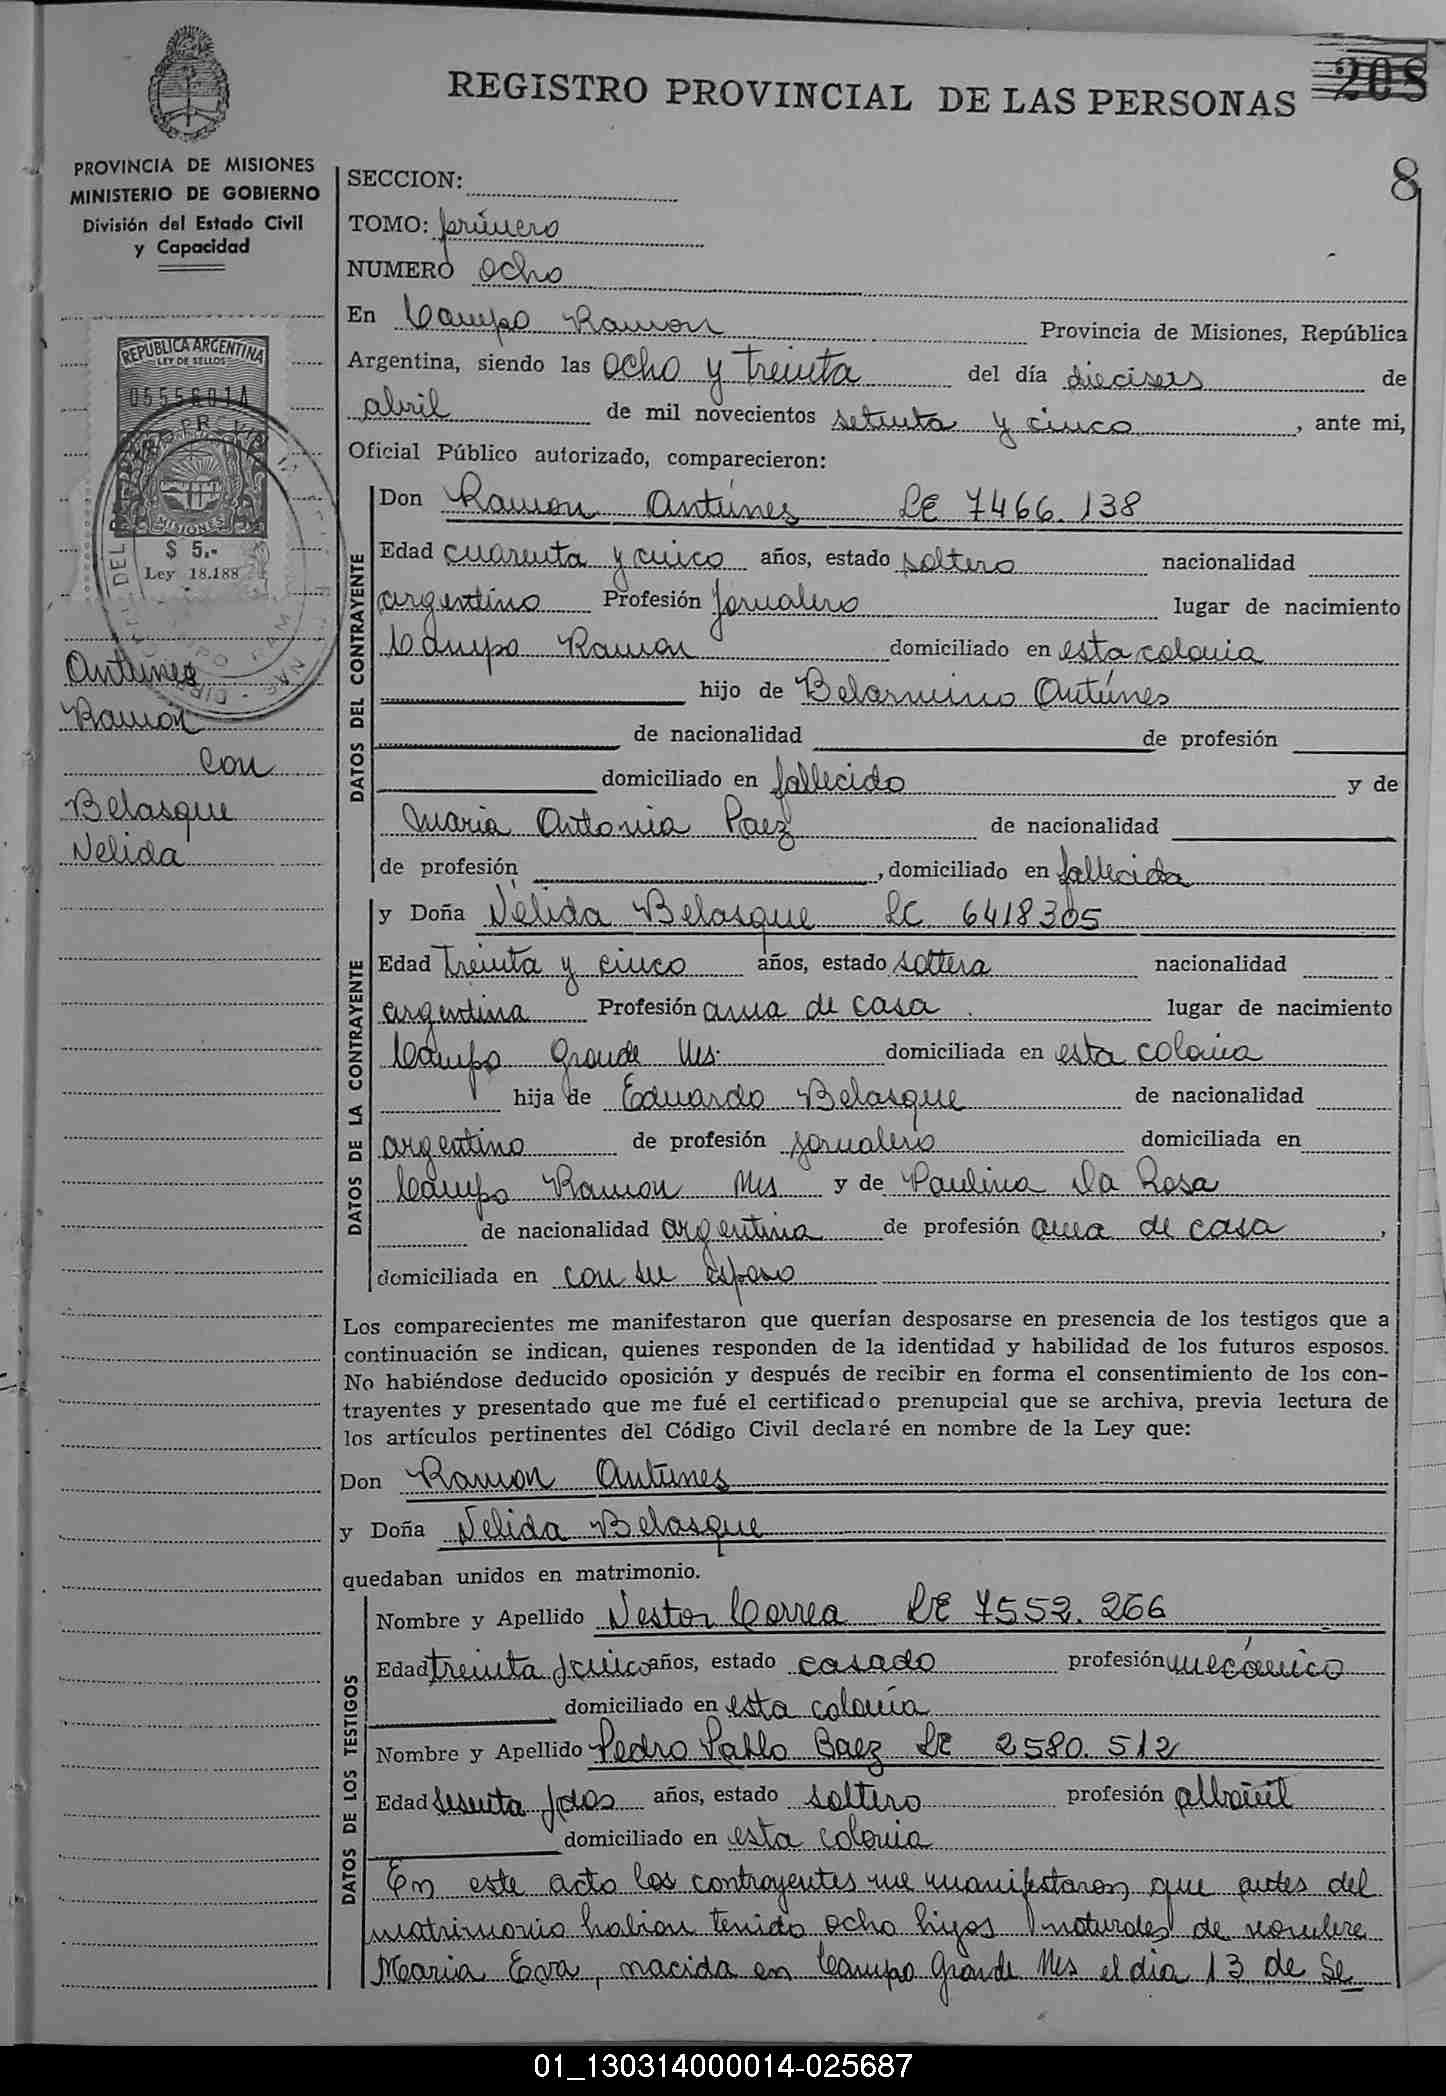 REGISTRO PROVINCIAL DE LAS PERSONAS
208
8
PROVINCIA DE MISIONES
MINISTERIO DE GOBIERNO
División del Estado Civil
y Capacidad
REPUBLICA ARGENTINA
LEY DE SELLOS
0555601A
MISIONES
$ 5.-
Ley 18.188
Antunes
Ramón
con
Belasque
Nelida
SECCION:
TOMO: primero
NUMERO ocho
En Campo Ramon Provincia de Misiones, República
Argentina, siendo las ocho y treinta del día dieciseis de
abril de mil novecientos setenta y cinco, ante mi,
Oficial Público autorizado, comparecieron:
DATOS DEL CONTRAYENTE
Don Ramon Antúnes LE 7466.138
Edad cuarenta y cinco años, estado soltero nacionalidad
argentino Profesión Jornalero lugar de nacimiento
Campo Ramon domiciliado en esta colonia
hijo de Belarmino Antúnes
de nacionalidad de profesión
domiciliado en fallecido y de
Maria Antonia Paez de nacionalidad
de profesión , domiciliado en fallecida
DATOS DE LA CONTRAYENTE
y Doña Nélida Belasque LC 6418305
Edad treinta y cinco años, estado soltera nacionalidad
argentina Profesión ama de casa lugar de nacimiento
Campo Grande Ms. domiciliada en esta colonia
hija de Eduardo Belasque de nacionalidad
argentino de profesión jornalero domiciliada en
Campo Ramon Ms y de Paulina Da Rosa
de nacionalidad argentina de profesión ama de casa ,
domiciliada en con su esposo
Los comparecientes me manifestaron que querían desposarse en presencia de los testigos que a
continuación se indican, quienes responden de la identidad y habilidad de los futuros esposos.
No habiéndose deducido oposición y después de recibir en forma el consentimiento de los con-
trayentes y presentado que me fué el certificado prenupcial que se archiva, previa lectura de
los artículos pertinentes del Código Civil declaré en nombre de la Ley que:
Don Ramon Antúnes
y Doña Nelida Belasque
quedaban unidos en matrimonio.
DATOS DE LOS TESTIGOS
Nombre y Apellido Nestor Correa LE 7552.266
Edad treinta y cinco años, estado casado profesión mecánico
domiciliado en esta colonia
Nombre y Apellido Pedro Pablo Baez LE 2580.512
Edad sesenta y dos años, estado soltero profesión albañil
domiciliado en esta colonia
En este acto los contrayentes me manifestaron que antes del
matrimonio habian tenido ocho hijos naturales de nombre
Maria Eva, nacida en Campo Grande Ms el dia 13 de Se
01_130314000014-025687